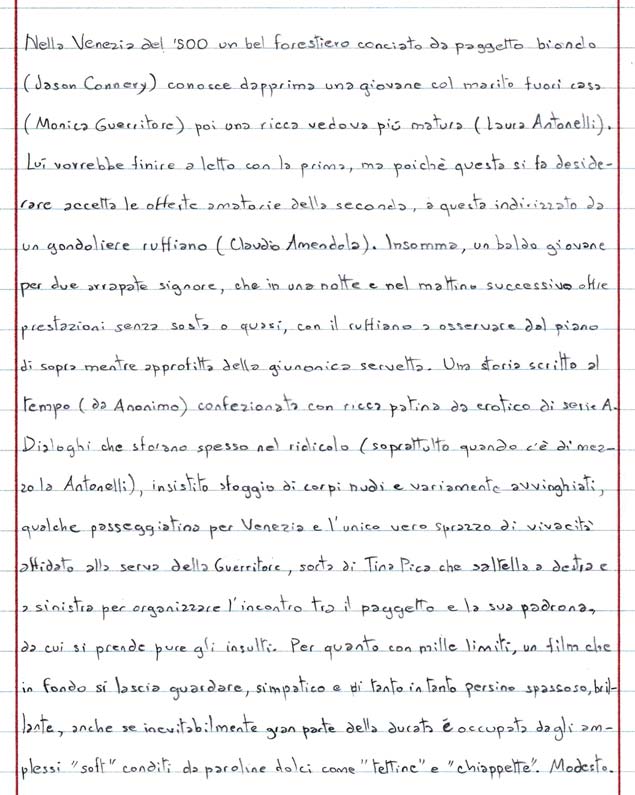 Nella Venezia del '500 un bel forestiero conciato da paggetto biondo
(Jason Connery) conosce dapprima una giovane col marito fuori casa
(Monica Guerritore) poi una ricca vedova più matura (Laura Antonelli).
Lui vorrebbe finire a letto con la prima, ma poichè questa si fa deside-
rare accetta le offerte amatorie della seconda, a questa indirizzato da
un gondoliere ruffiano (Claudio Amendola). Insomma, un baldo giovane
per due arrapate signore, che in una notte e nel mattino successivo offre
prestazioni senza sosta o quasi, con il ruffiano a osservare dal piano
di sopra mentre approfitta della giunonica servetta. Una storia scritta al
tempo (da Anonimo) confezionata con ricca patina da erotico di serie A.
Dialoghi che sforano spesso nel ridicolo (soprattutto quando c'è di mez-
zo la Antonelli), insistito sfoggio di corpi nudi e variamente avvinghiati,
qualche passeggiatina per Venezia e l'unico vero sprazzo di vivacità
affidato alla serva della Guerritore, sorta di Tina Pica che saltella a destra e
a sinistra per organizzare l'incontro tra il paggetto e la sua padrona,
da cui si prende pure gli insulti. Per quanto con mille limiti, un film che
in fondo si lascia guardare, simpatico e di tanto in tanto persino spassoso, bril-
lante, anche se inevitabilmente gran parte della durata è occupata dagli am-
plessi "soft" conditi da paroline dolci come "tettine" e "chiappette". Modesto.